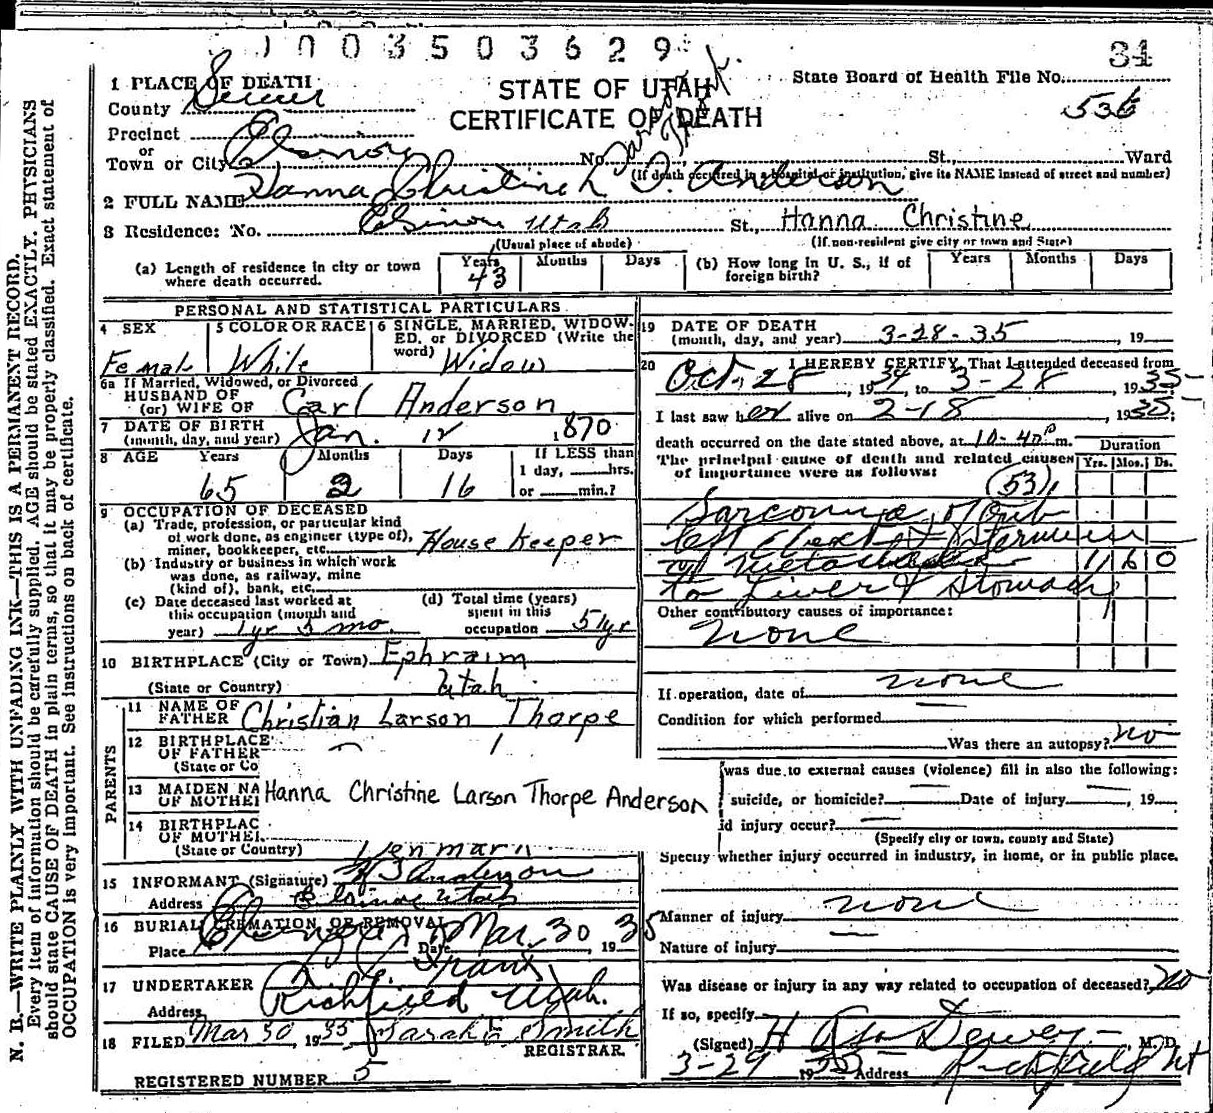 1003503629
34
1 PLACE OF DEATH
STATE OF UTAH
State Board of Health File No.
County Sevier
CERTIFICATE OF DEATH
536
Precinct
or
Town or City Elsinore No. St., Ward
(If death occurred in a hospital or institution, give its NAME instead of street and number)
2 FULL NAME Hanna Christina L. T. Anderson
3 Residence: No. Elsinore Utah St., Hanna Christine
(Usual place of abode) (If non-resident give city or town and State)
(a) Length of residence in city or town where death occurred. Years 43 Months Days
(b) How long in U. S., if of foreign birth? Years Months Days
PERSONAL AND STATISTICAL PARTICULARS
4 SEX Female
5 COLOR OR RACE White
6 SINGLE, MARRIED, WIDOWED, or DIVORCED (Write the word) Widow
6a If Married, Widowed, or Divorced
HUSBAND OF
(or) WIFE OF Carl Anderson
7 DATE OF BIRTH
(month, day, and year) Jan. 12 1870
8 AGE Years 65 Months 2 Days 16
If LESS than
1 day, hrs.
or min.?
9 OCCUPATION OF DECEASED
(a) Trade, profession, or particular kind
of work done, as engineer (type of),
miner, bookkeeper, etc. House Keeper
(b) Industry or business in which work
was done, as railway, mine
(kind of), bank, etc.
(c) Date deceased last worked at
this occupation (month and
year) 1 yr 5 mo.
(d) Total time (years)
spent in this
occupation 51 yr
10 BIRTHPLACE (City or Town) Ephraim
(State or Country) Utah
PARENTS
11 NAME OF
FATHER Christian Larson Thorpe
12 BIRTHPLACE
OF FATHER
(State or Co
13 MAIDEN NA
OF MOTHER
Hanna Christine Larson Thorpe Anderson
14 BIRTHPLAC
OF MOTHER
(State or Country) Denmark
15 INFORMANT (Signature) Anderson
Address Elsinore Utah
16 BURIAL, CREMATION OR REMOVAL
Place Date Mar. 30, 1935
17 UNDERTAKER
Address Richfield Utah.
18 FILED Mar 30 1935 Sarah E Smith
REGISTRAR.
REGISTERED NUMBER 5
19 DATE OF DEATH
(month, day, and year) 3-28-35, 19
20 I HEREBY CERTIFY, That I attended deceased from
Oct. 28, 1934 to 3-28 1935
I last saw her alive on 2-18, 1935;
death occurred on the date stated above, at 10-40 p m.
The principal cause of death and related causes
of importance were as follows:
Duration
Yrs. Mos. Ds.
(53)
Sarcoma of
left chest &
of metastasis 1 6 0
to Liver & Stomach
Other contributory causes of importance:
none
If operation, date of none
Condition for which performed
Was there an autopsy? no
was due to external causes (violence) fill in also the following:
suicide, or homicide? Date of injury, 19
id injury occur?
(Specify city or town, county and State)
Specify whether injury occurred in industry, in home, or in public place.
Manner of injury none
Nature of injury
Was disease or injury in any way related to occupation of deceased? No
If so, specify
(Signed) H Asa Dewey, M. D.
3-29 1935 Address Richfield Ut
N. B.—WRITE PLAINLY WITH UNFADING INK—THIS IS A PERMANENT RECORD.
Every item of information should be carefully supplied. AGE should be stated EXACTLY. PHYSICIANS
should state CAUSE OF DEATH in plain terms, so that it may be properly classified. Exact statement of
OCCUPATION is very important. See instructions on back of certificate.